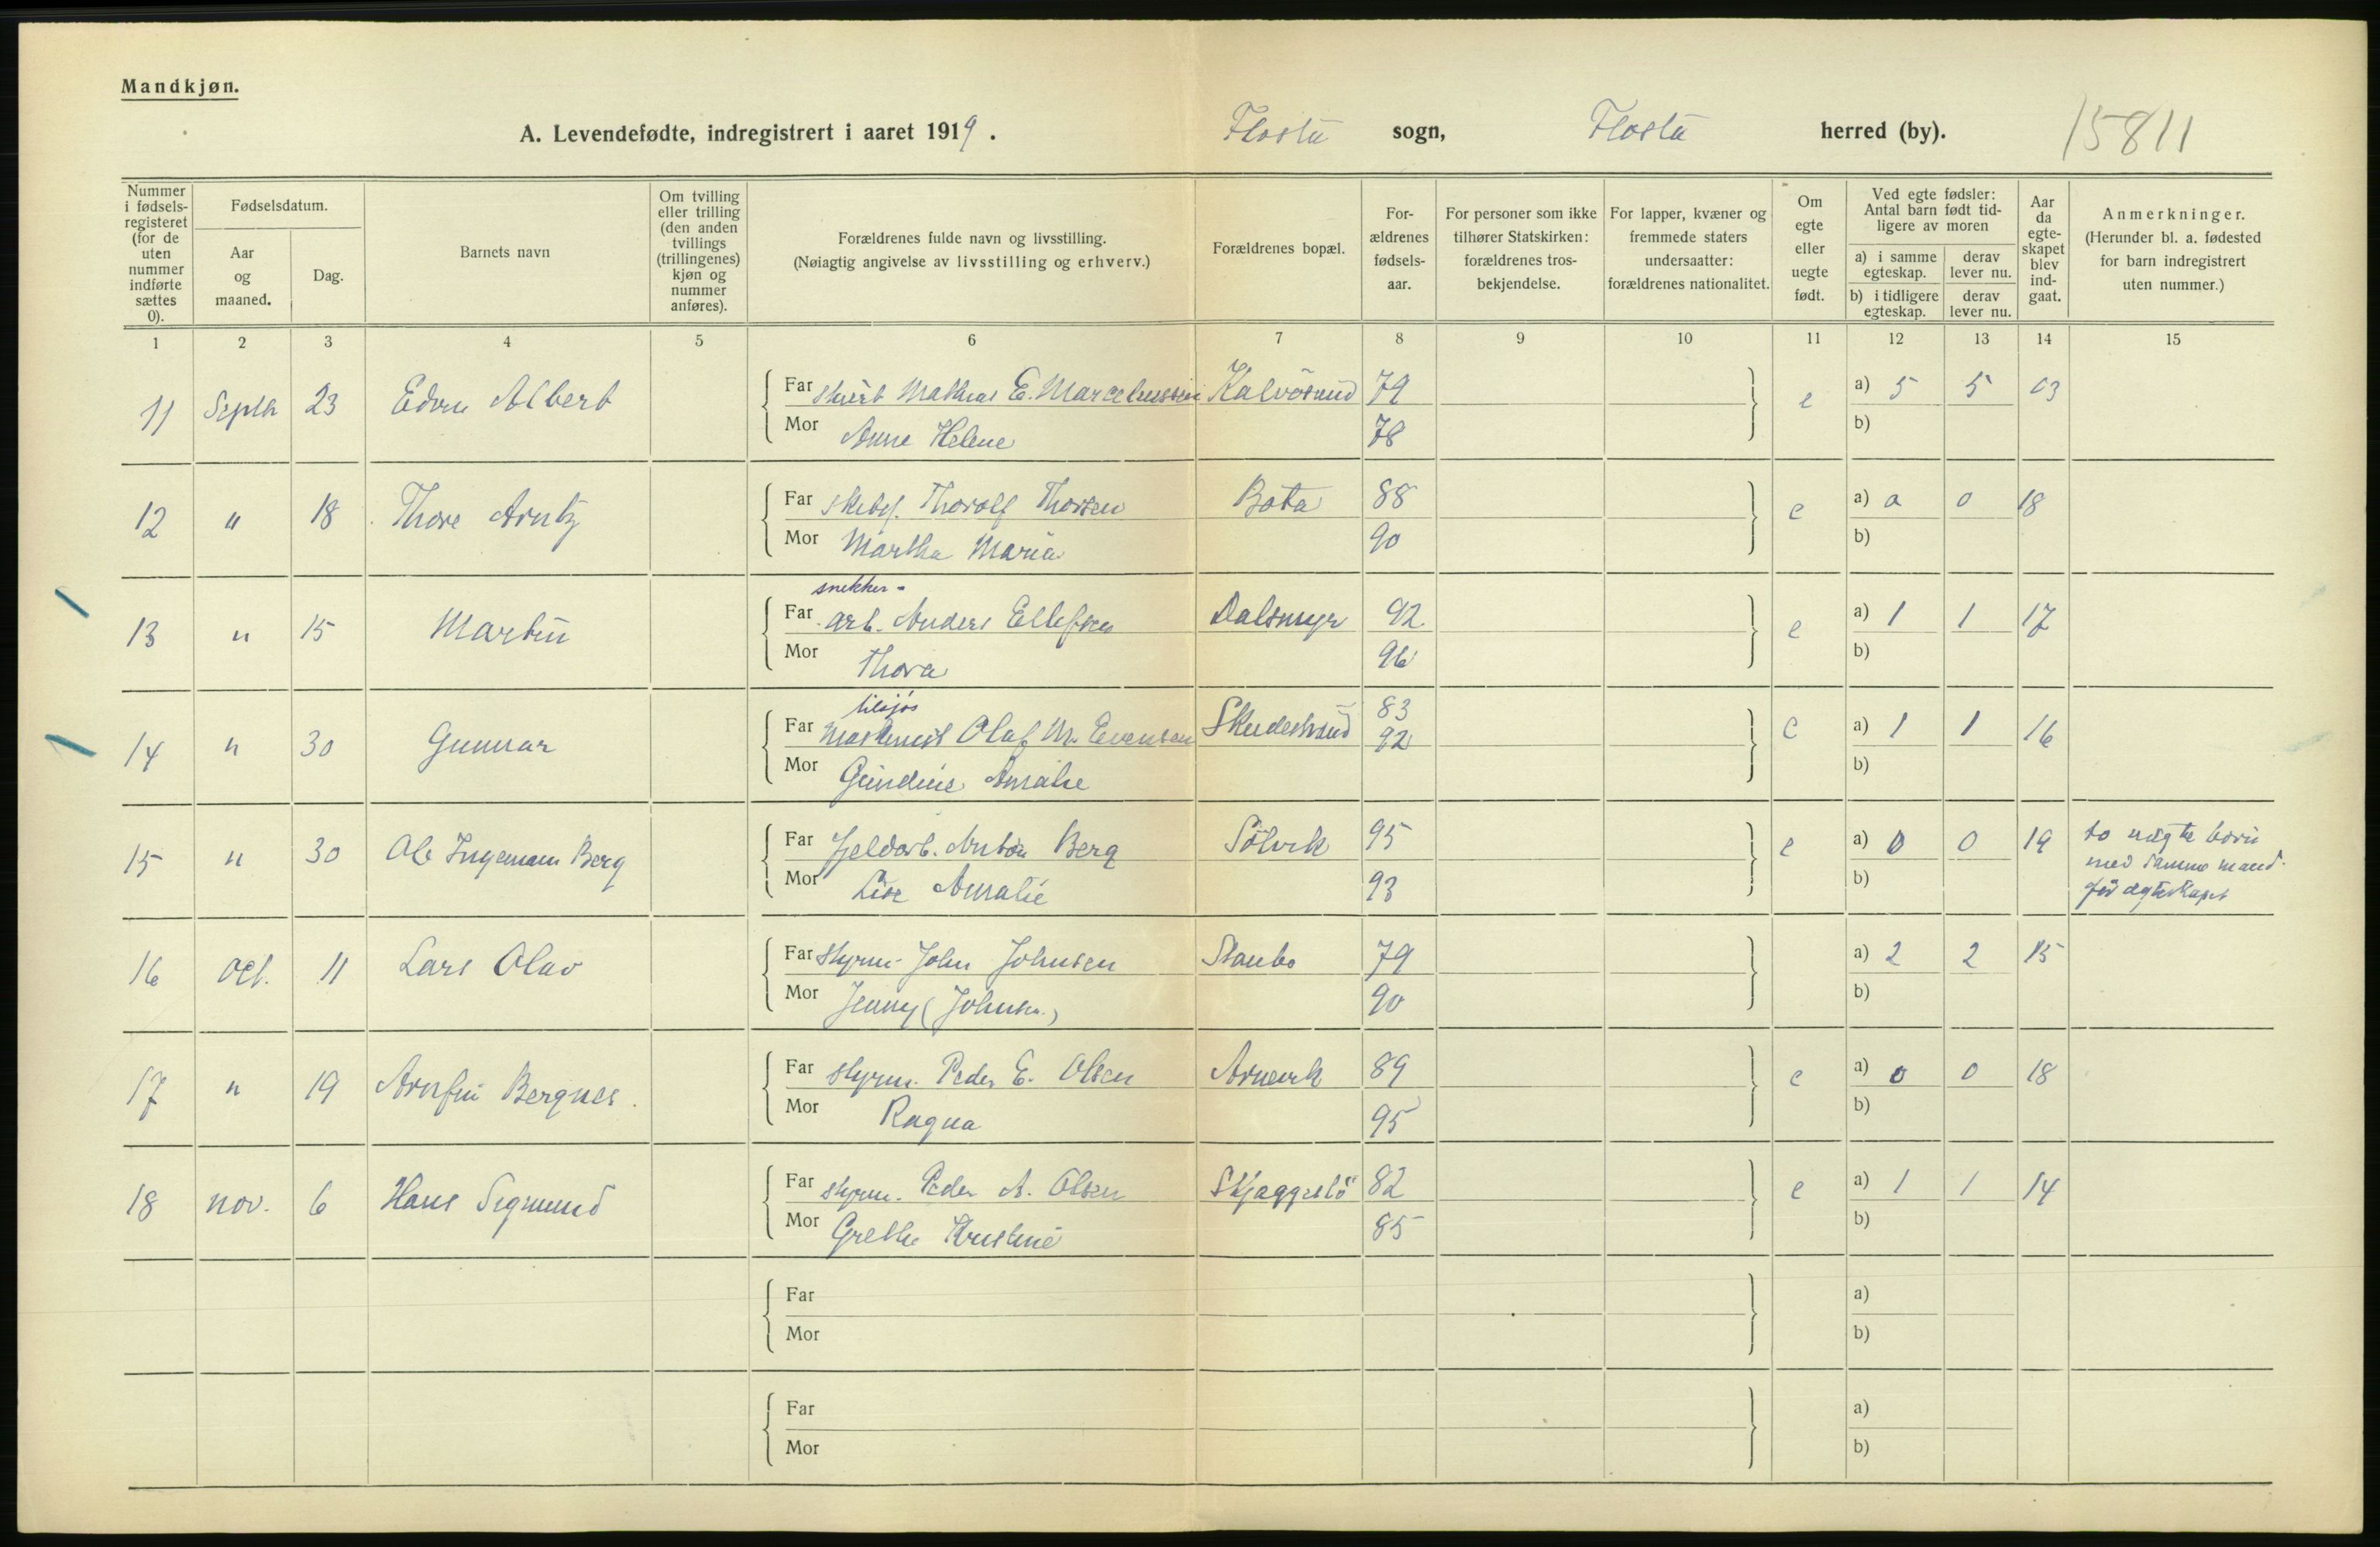 Mandkjøn.
A. Levendefødte, indregistrert i aaret 1919. Flosta sogn, Flosta herred (by). 15811
Nummer i fødsels-registeret (for de uten nummer indførte sættes 0).
Fødselsdatum.
Aar og maaned.
Dag.
Barnets navn
Om tvilling eller trilling (den anden tvillings (trillingenes) kjøn og nummer anføres).
Forældrenes fulde navn og livsstilling.
(Nøiagtig angivelse av livsstilling og erhverv.)
Forældrenes bopæl.
For-ældrenes fødsels-aar.
For personer som ikke tilhører Statskirken: forældrenes tros-bekjendelse.
For lapper, kvæner og fremmede staters undersaatter: forældrenes nationalitet.
Om egte eller uegte født.
Ved egte fødsler: Antal barn født tid-ligere av moren
a) i samme egteskap.
derav lever nu.
b) i tidligere egteskap.
derav lever nu.
Aar da egte-skapet blev ind-gaat.
Anmerkninger.
(Herunder bl. a. fødested for barn indregistrert uten nummer.)
1 2 3 4 5 6 7 8 9 10 11 12 13 14 15
11 Septbr 23 Edvin Albert Far Mathias E. Marceliussen Kalvøsund 79 e a) 5 5 03
Mor Anne Helene 78 b)
12 " 18 Thore Arntz Far Thorolf Thorsen Bota 88 e a) 0 0 18
Mor Martha Maria 90 b)
snekker-
13 " 15 Martin Far arb. Anders Ellefsen Dalsmyr 92 e a) 1 1 17
Mor Thora 96 b)
tilsjøs
14 " 30 Gunnar Far Maskinist Olaf M. Evensen 83 e a) 1 1 16
92
Mor Gundine Amalie b)
15 " 30 Ole Ingemann Berg Far Fjeldarb. Anton Berg Sølvik 95 e a) 0 0 19 to uægte børn
med samme mand
før ægteskapet
Mor Lise Amalie 93 b)
16 Oct. 11 Lars Olav Far Styrm. John Johnsen Staubo 79 a) 2 2 15
Mor Jenny (Johnsen.) 90 b)
17 " 19 Arnfin Bergnes. Far Styrm. Peder E. Olsen Arnevik 89 e a) 0 0 18
Mor Ragna 95 b)
18 nov. 6 Hans Sigmund Far styrm. Peder A. Olsen Skjaggestø 82 e a) 1 1 14
Mor Grethe Kristine 85 b)
Far a)
Mor b)
Far a)
Mor b)